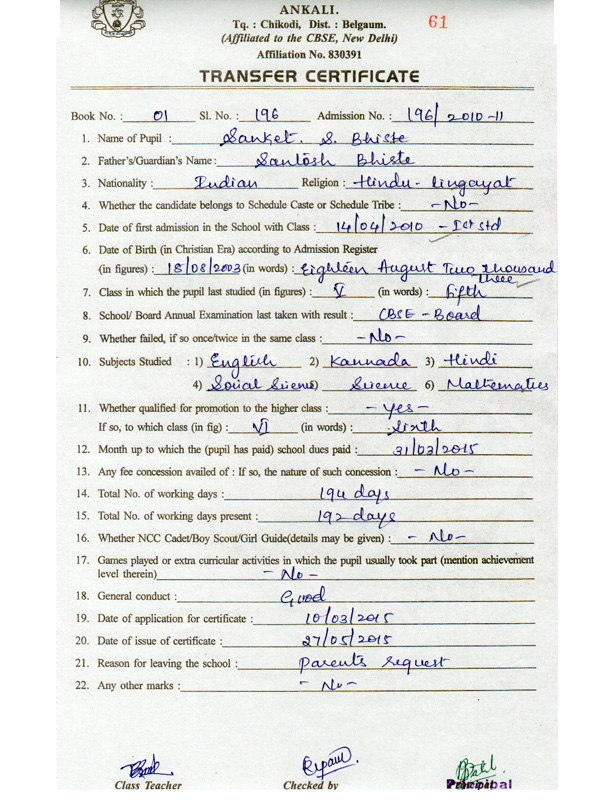 ANKALI.
Tq. : Chikodi, Dist. : Belgaum.
61
(Affiliated to the CBSE, New Delhi)
Affiliation No. 830391
TRANSFER CERTIFICATE
Book No. : 01 Sl. No. : 196 Admission No. : 196/2010-11
1. Name of Pupil : Sanket. S. Bhiste
2. Father's/Guardian's Name : Santosh Bhiste
3. Nationality : Indian Religion : Hindu - lingayat
4. Whether the candidate belongs to Schedule Caste or Schedule Tribe : -No-
5. Date of first admission in the School with Class : 14/04/2010 - Ist std
6. Date of Birth (in Christian Era) according to Admission Register
(in figures) : 18/08/2003 (in words) : Eighteen August Two thousand three
7. Class in which the pupil last studied (in figures) : V (in words) : fifth
8. School/ Board Annual Examination last taken with result : CBSE - Board
9. Whether failed, if so once/twice in the same class : -No-
10. Subjects Studied : 1) English 2) Kannada 3) Hindi
4) Social Science 5) Science 6) Mathematics
11. Whether qualified for promotion to the higher class : - Yes -
If so, to which class (in fig) : VI (in words) : Sixth
12. Month up to which the (pupil has paid) school dues paid : 31/03/2015
13. Any fee concession availed of : If so, the nature of such concession : - No -
14. Total No. of working days : 194 days
15. Total No. of working days present : 192 days
16. Whether NCC Cadet/Boy Scout/Girl Guide(details may be given) : - No -
17. Games played or extra curricular activities in which the pupil usually took part (mention achievement
level therein) - No -
18. General conduct : Good
19. Date of application for certificate : 10/03/2015
20. Date of issue of certificate : 27/05/2015
21. Reason for leaving the school : Parents request
22. Any other marks : - No -
Class Teacher Checked by Principal